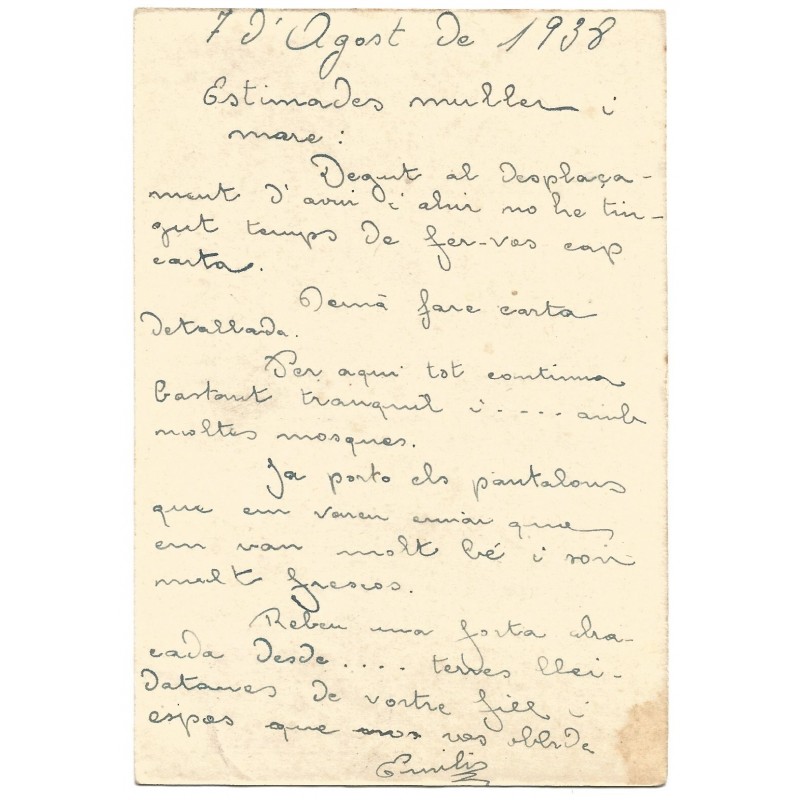 7 d'Agost de 1938
Estimades muller i
mare:
Degut al desplaça-
ment d'avui i ahir no he tin-
gut temps de fer-vos cap
carta.
Demà fare carta
detallada.
Per aqui tot continua
bastant tranquil i .... amb
moltes mosques.
Ja porto els pantalons
que em vareu enviar que
em van molt bé i son
molt frescos.
Rebeu una forta abra-
cada desde .... terres llei-
datanes de vostre fill i
espos que nos vos oblida
Emili